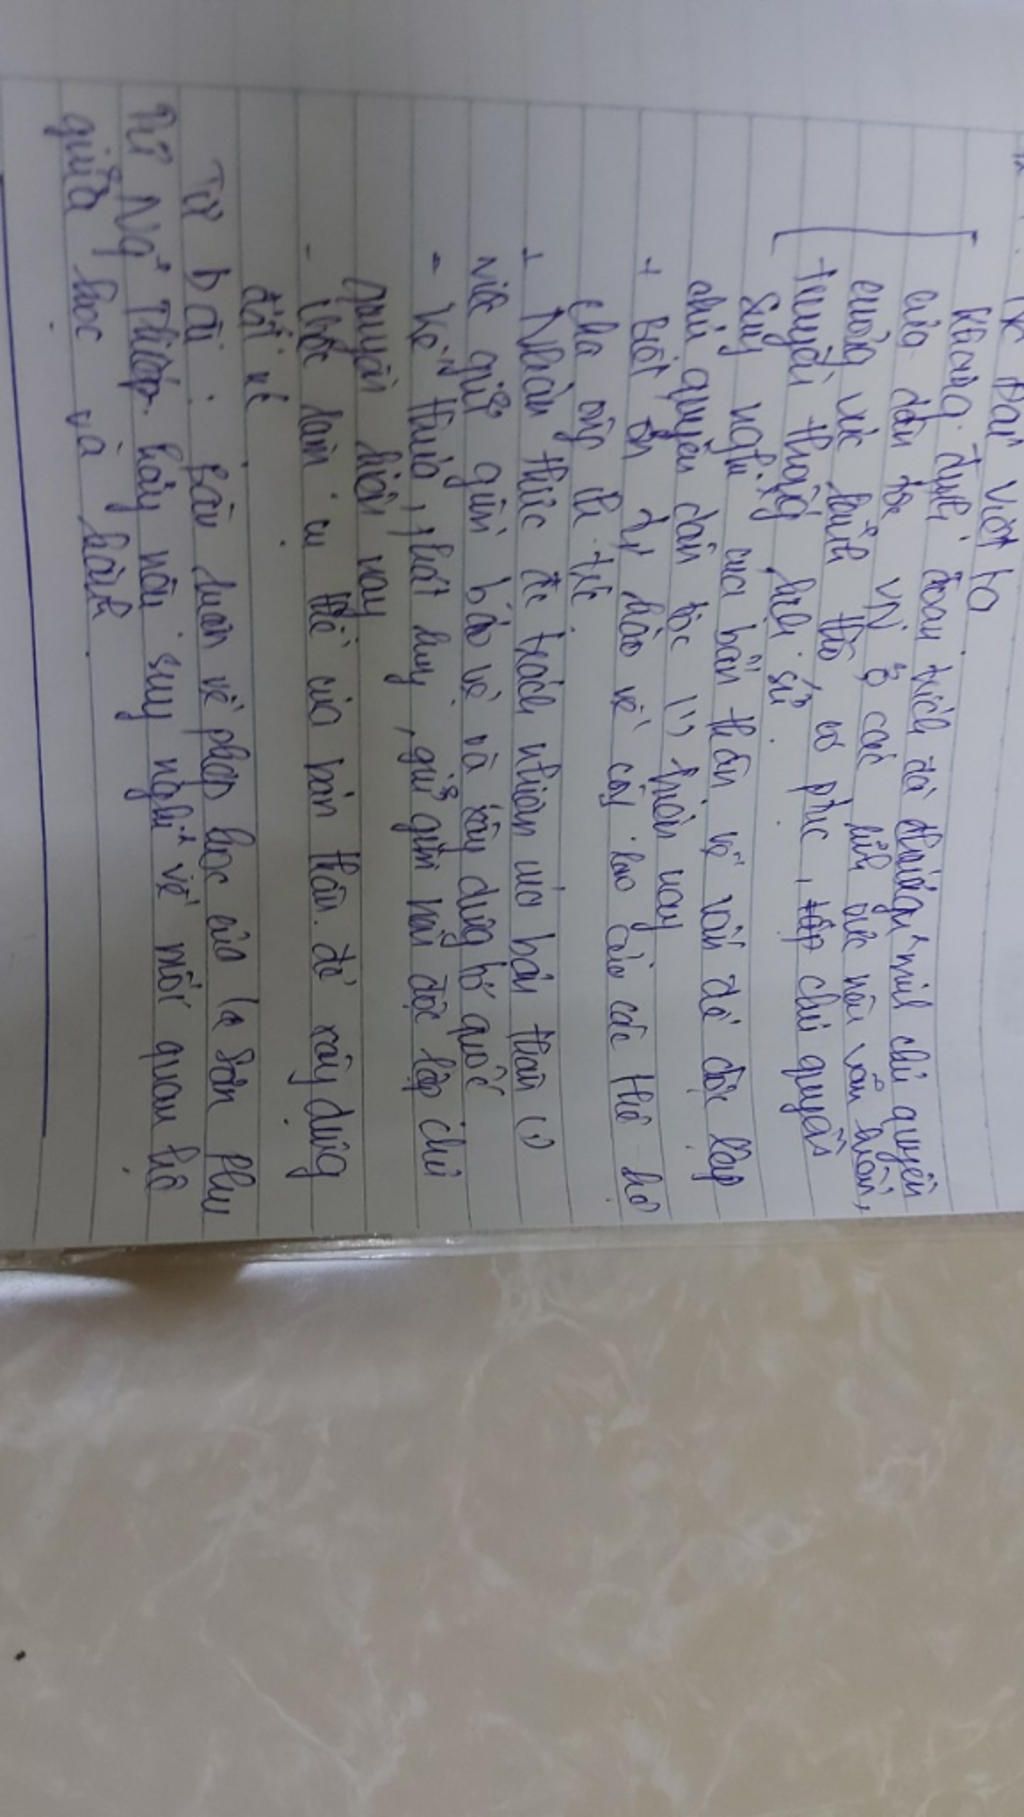 Đại Việt ta
Khẳng định đoạn trích đã chủ quyền
của dân tộc VN ở các lĩnh vực nền văn hiến,
cương vực lãnh thổ phục, chủ quyền
truyền thống lịch sử.
Suy nghĩ của bản thân về vấn đề độc lập
chủ quyền dân tộc (') hiện nay
+ Biết ơn tự hào về công lao của các thế hệ
cha ông đi trc
+ Nhận thức đc trách nhiệm của bản thân (')
việc giữ gìn bảo vệ và xây dựng tổ quốc
- Kế thừa, phát huy, giữ gìn nền độc lập chủ
quyền hiện nay
- làm cụ thể của bản thân để xây dựng
đất nc
Từ bài : Bàn luận về phép học của La Sơn Phu
Tử Ng~ Thiếp hãy nêu suy nghĩ về mối quan hệ
giữa học và hành